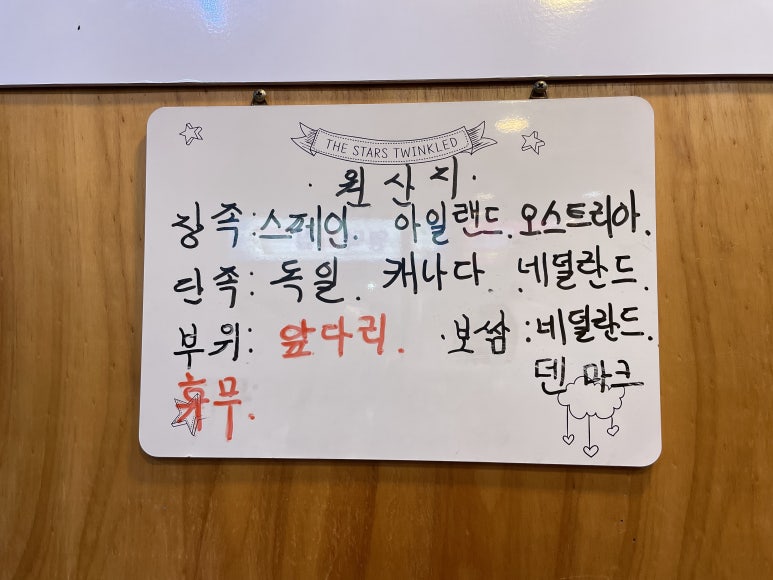 THE STARS TWINKLED
· 원 산 지 ·
장 족 : 스페인. 아일랜드. 오스트리아.
단 족 : 독일. 캐나다. 네덜란드.
부위: 앞다리. ·보쌈 : 네덜란드.
덴마크
휴무.